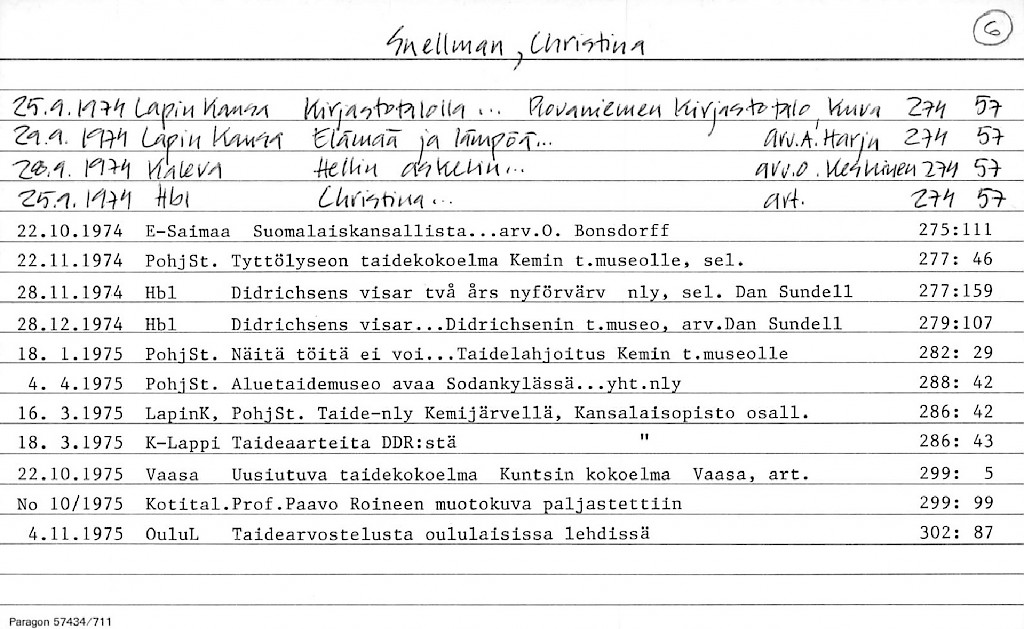 6
Snellman, Christina
25.9.1974 Lapin Kansa Kirjastotalolla ... Rovaniemen Kirjastotalo, kuva 274 57
29.9. 1974 Lapin Kansa Elämää ja lämpöä... arv. A. Harju 274 57
28.9. 1974 Kaleva Hellin askelin... arv. O. Keskinen 274 57
25.9.1974 Hbl Christina... art. 274 57
22.10.1974 E-Saimaa Suomalaiskansallista...arv.O. Bonsdorff 275:111
22.11.1974 PohjSt. Tyttölyseon taidekokoelma Kemin t.museolle, sel. 277: 46
28.11.1974 Hbl Didrichsens visar två års nyförvärv nly, sel. Dan Sundell 277:159
28.12.1974 Hbl Didrichsens visar...Didrichsenin t.museo, arv.Dan Sundell 279:107
18. 1.1975 PohjSt. Näitä töitä ei voi...Taidelahjoitus Kemin t.museolle 282: 29
4. 4.1975 PohjSt. Aluetaidemuseo avaa Sodankylässä...yht.nly 288: 42
16. 3.1975 LapinK, PohjSt. Taide-nly Kemijärvellä, Kansalaisopisto osall. 286: 42
18. 3.1975 K-Lappi Taideaarteita DDR:stä " 286: 43
22.10.1975 Vaasa Uusiutuva taidekokoelma Kuntsin kokoelma Vaasa, art. 299: 5
No 10/1975 Kotital.Prof.Paavo Roineen muotokuva paljastettiin 299: 99
4.11.1975 OuluL Taidearvostelusta oululaisissa lehdissä 302: 87
Paragon 57434/711